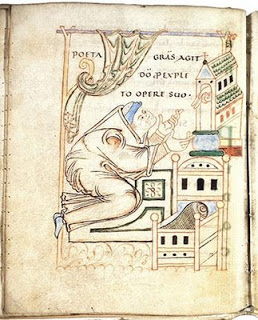 POETA GRĀS AGIT
DŌ ꝓ EXPLI
TO OPERE SUO·